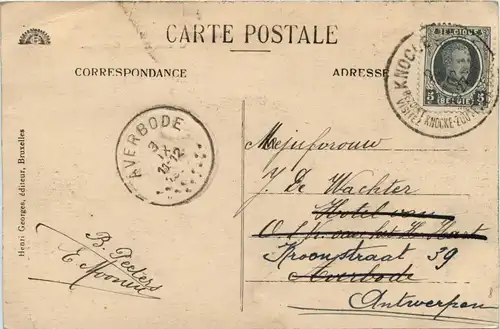 CARTE POSTALE
CORRESPONDANCE
ADRESSE
KNOCKE
VISITEZ KNOCKE-ZOUTE
BELGIQUE
5 BELGIË 5
AVERBODE
3
IX
11-12
Henri Georges, éditeur, Bruxelles
B. Peeters
E
Mejuforouw
J. De Wachter
Hotel van
O.L.V. van het H. Hart
Kroonstraat 39
Averbode
Antwerpen